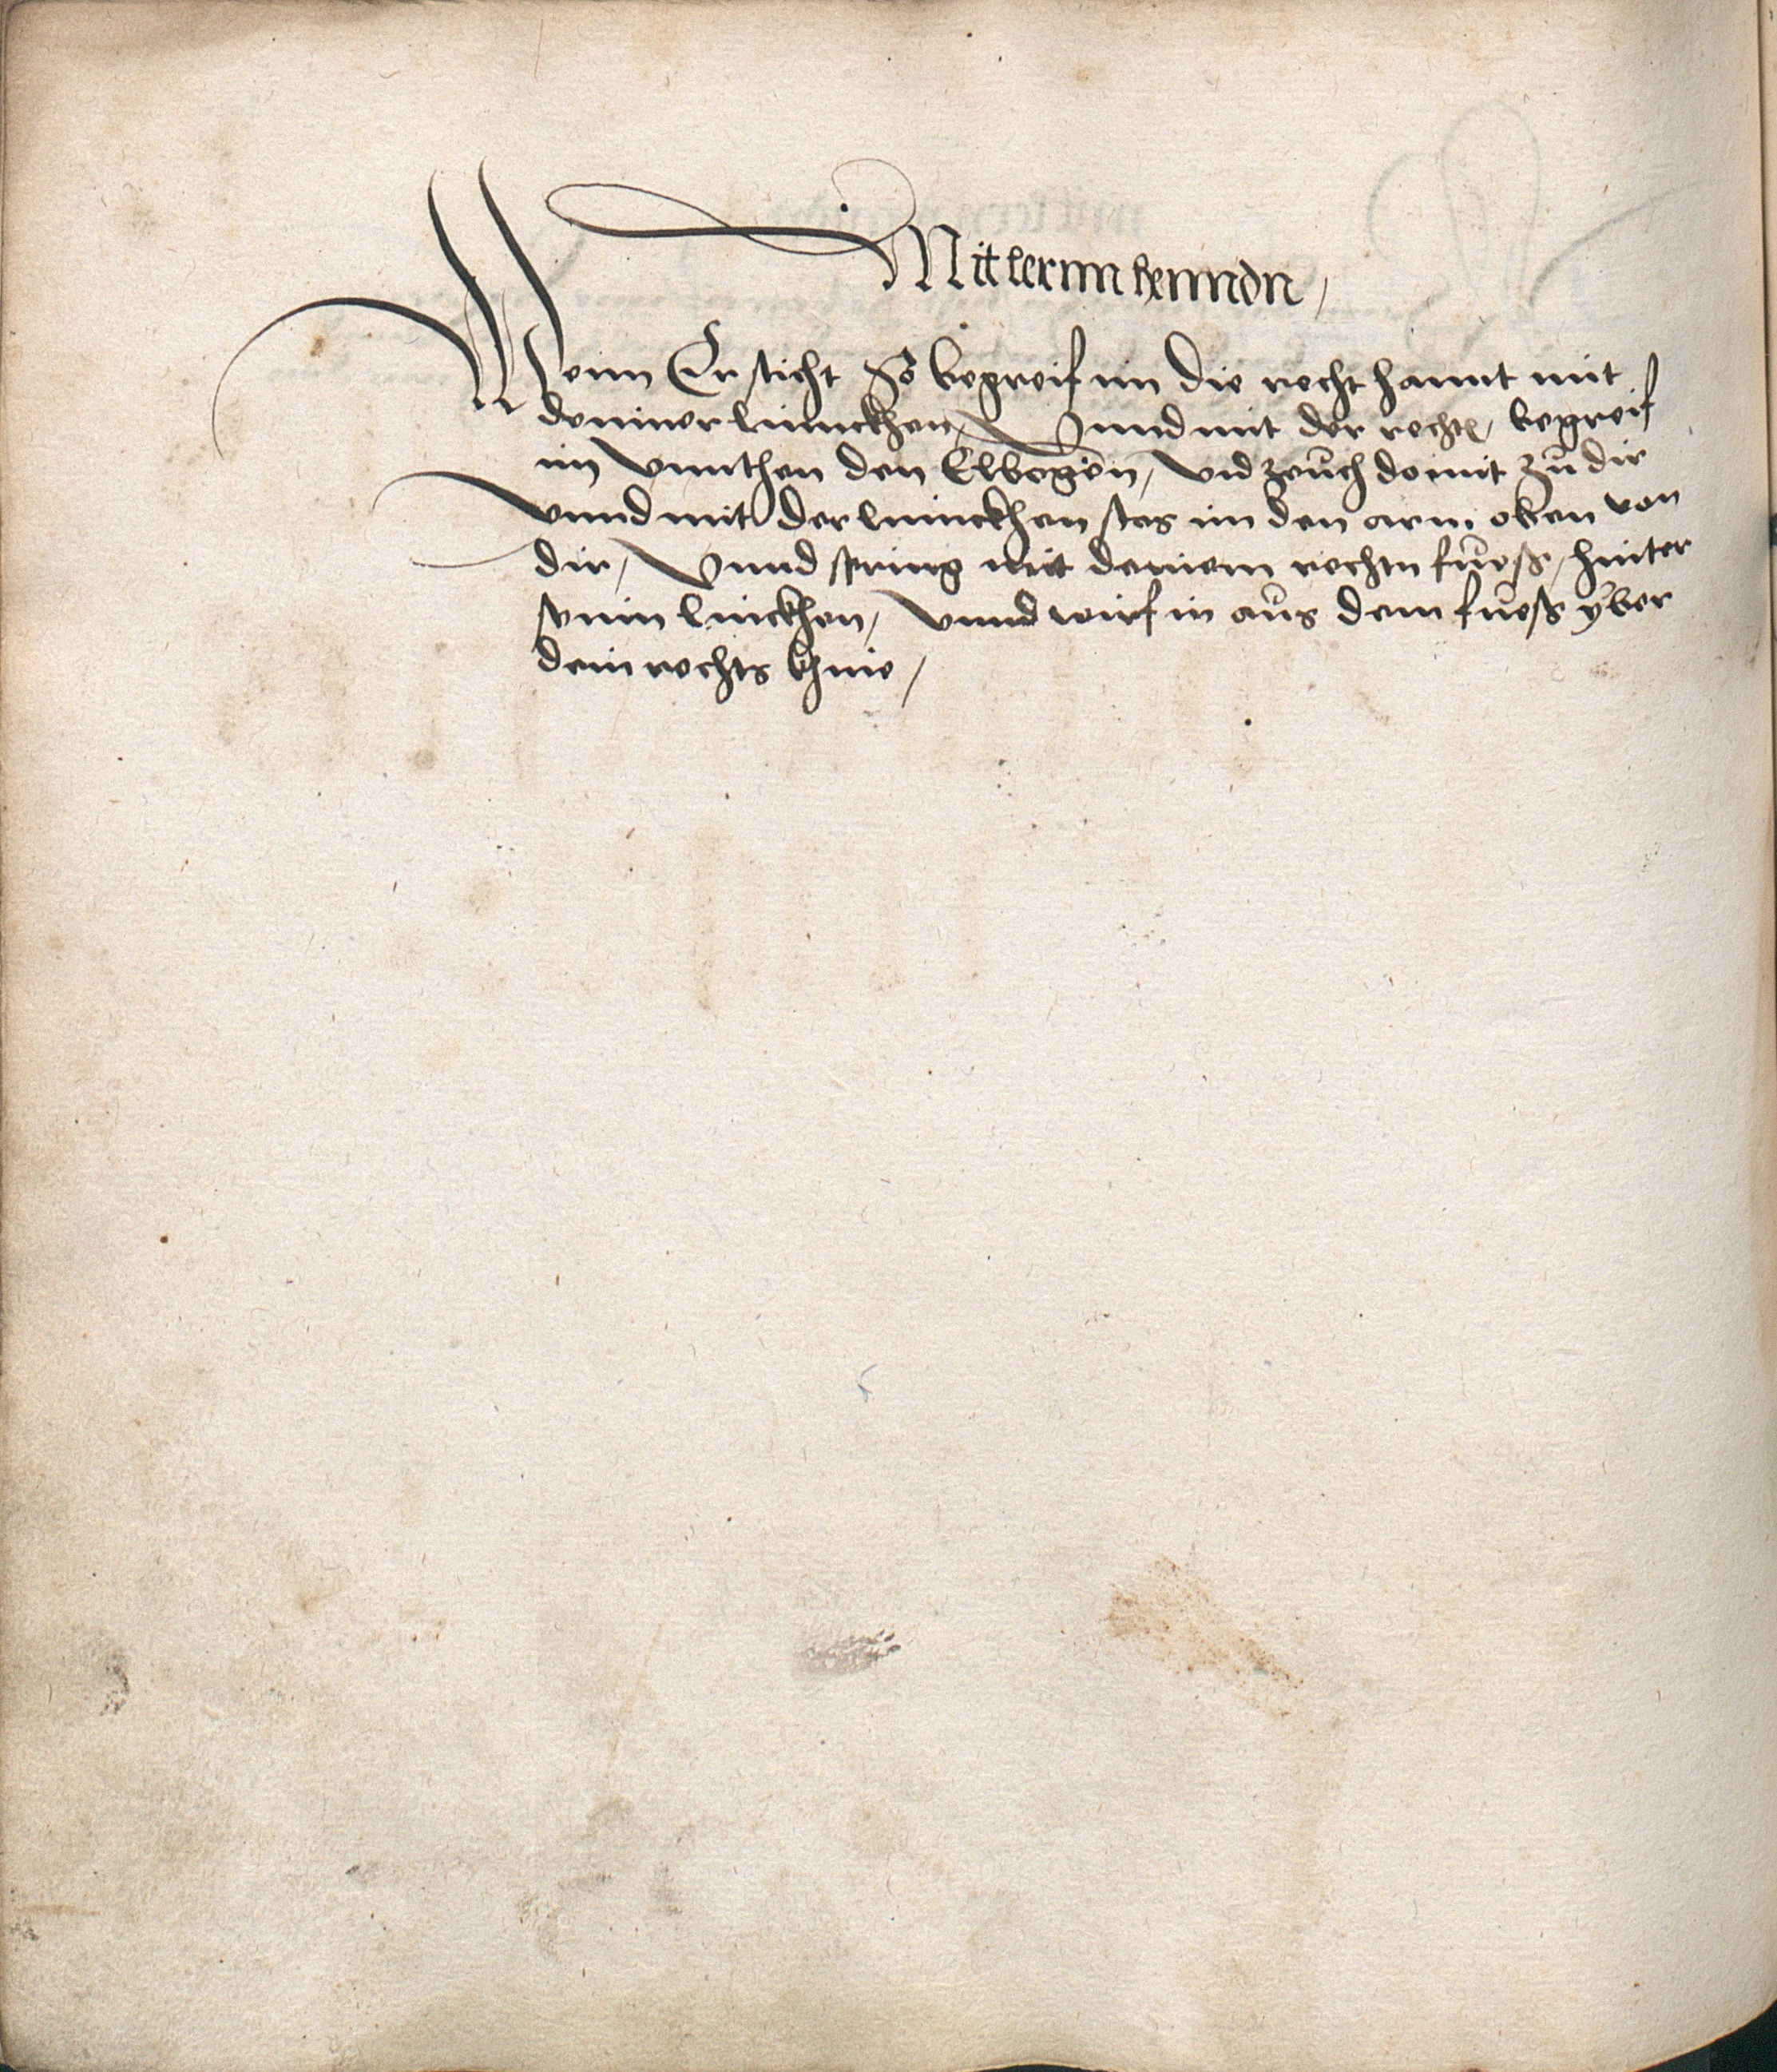 Mit lernn henndn /
Wenn Er sticht So begreif im die recht hannt mit
deniner linnckhen, Vnnd mit der rechtn, begreif
im vnnthen den Elbogen, vnd zeuch domit zu dir
vnnd mit der linnckhen stos im den arm oben von
dir, Vnnd spring mit deniem rechtn fuess, hinter
senin linckhen, vnnd wirf in aus dem fuess yber
dein rechts khnie /